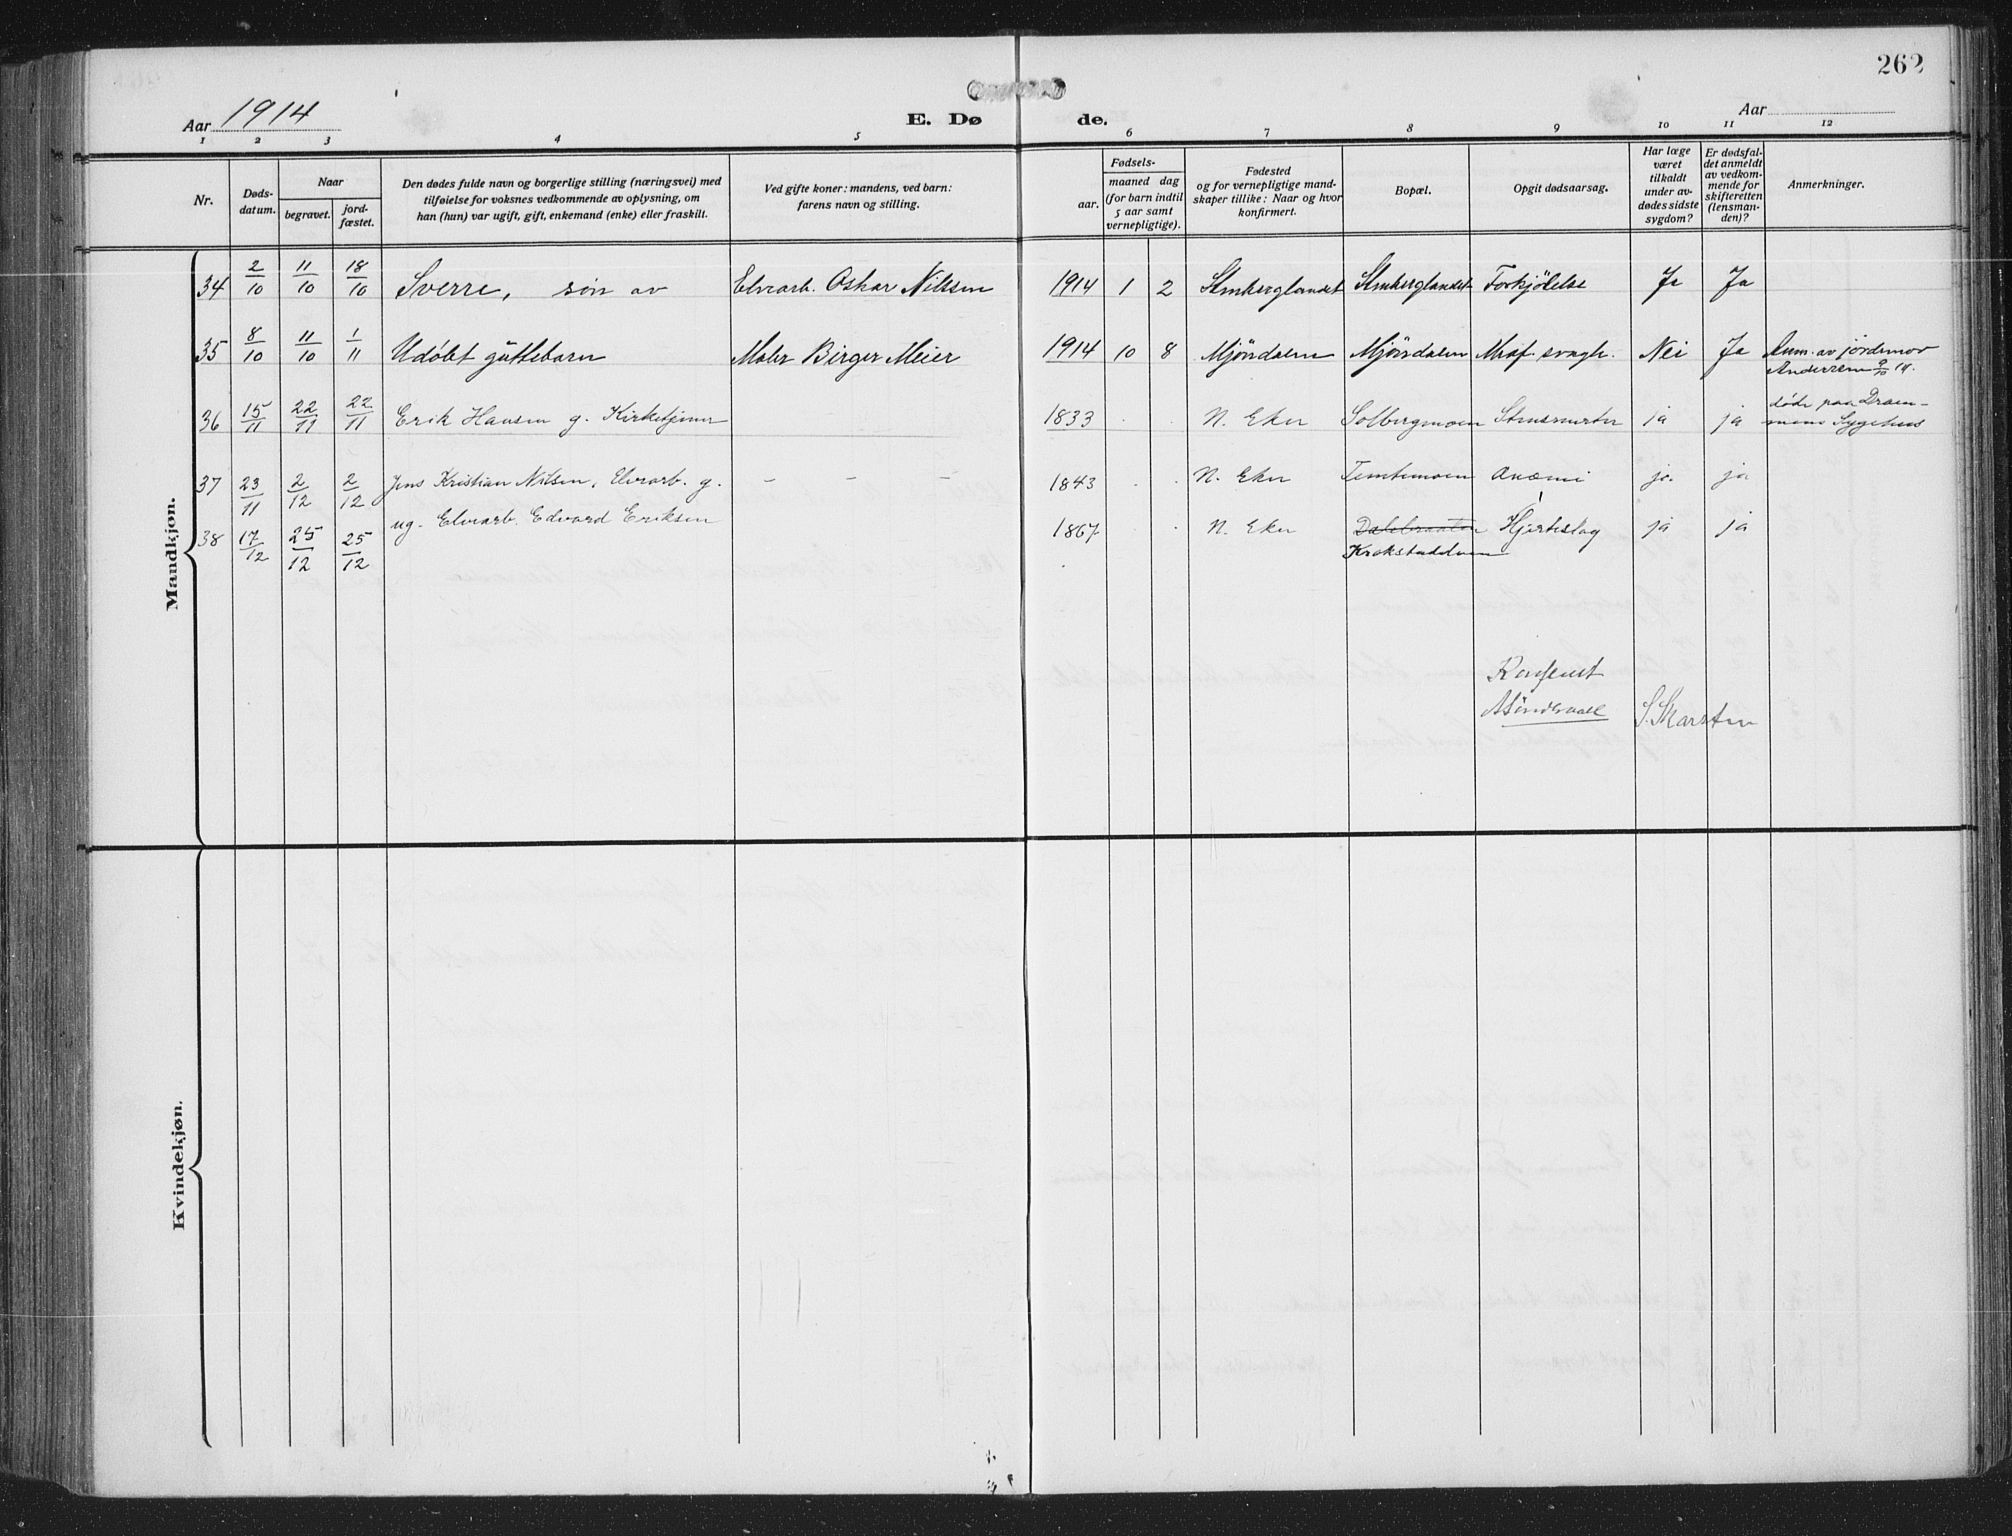 262
Aar 1914
E. Dø
de.
Aar
1 2 3 4 5 6 7 8 9 10 11 12
Nr.
Døds-
datum.
Naar
begravet.
jord-
fæstet.
Den dødes fulde navn og borgerlige stilling (næringsvei) med
tilføielse for voksnes vedkommende av oplysning, om
han (hun) var ugift, gift, enkemand (enke) eller fraskilt.
Ved gifte koner: mandens, ved barn:
farens navn og stilling.
Fødsels-
aar.
maaned dag
(for barn indtil
5 aar samt
vernepligtige).
Fødested
og for vernepligtige mand-
skaper tillike: Naar og hvor
konfirmert.
Bopæl.
Opgit dødsaarsag.
Har læge
været
tilkaldt
under av-
dødes sidste
sygdom?
Er dødsfal-
det anmeldt
av vedkom-
mende for
skifteretten
(lensman-
den)?
Anmerkninger.
Mandkjøn.
34 2/10 11/10 18/10 Sverre, søn av Elvearb. Oskar Nilsen 1914 1 2 Stenberglandet Stenberglandet Forkjölelse Ja Ja
35 8/10 11/10 1/11 Udöbt guttebarn Maler Birger Meier 1914 10 8 Mjöndalen Mjöndalen Medf. svagh. Nei Ja Anm. av jordemor
Andersen 9/10 14.
36 15/11 22/11 22/11 Erik Hansen g. Kirketjener 1833 N. Eker Solbergmoen ja ja døde paa Dram-
mens Sygehus
37 23/11 2/12 2/12 Jens Kristian Nilsen, Elvearb. g. - - - 1843 N. Eker Anæmi ja ja
38 17/12 25/12 25/12 ug. Elvearb. Edvard Eriksen 1867 N. Eker Hjerteslag ja ja
Krokstadelven
Konferert
S. Skarsten
Kvindekjøn.